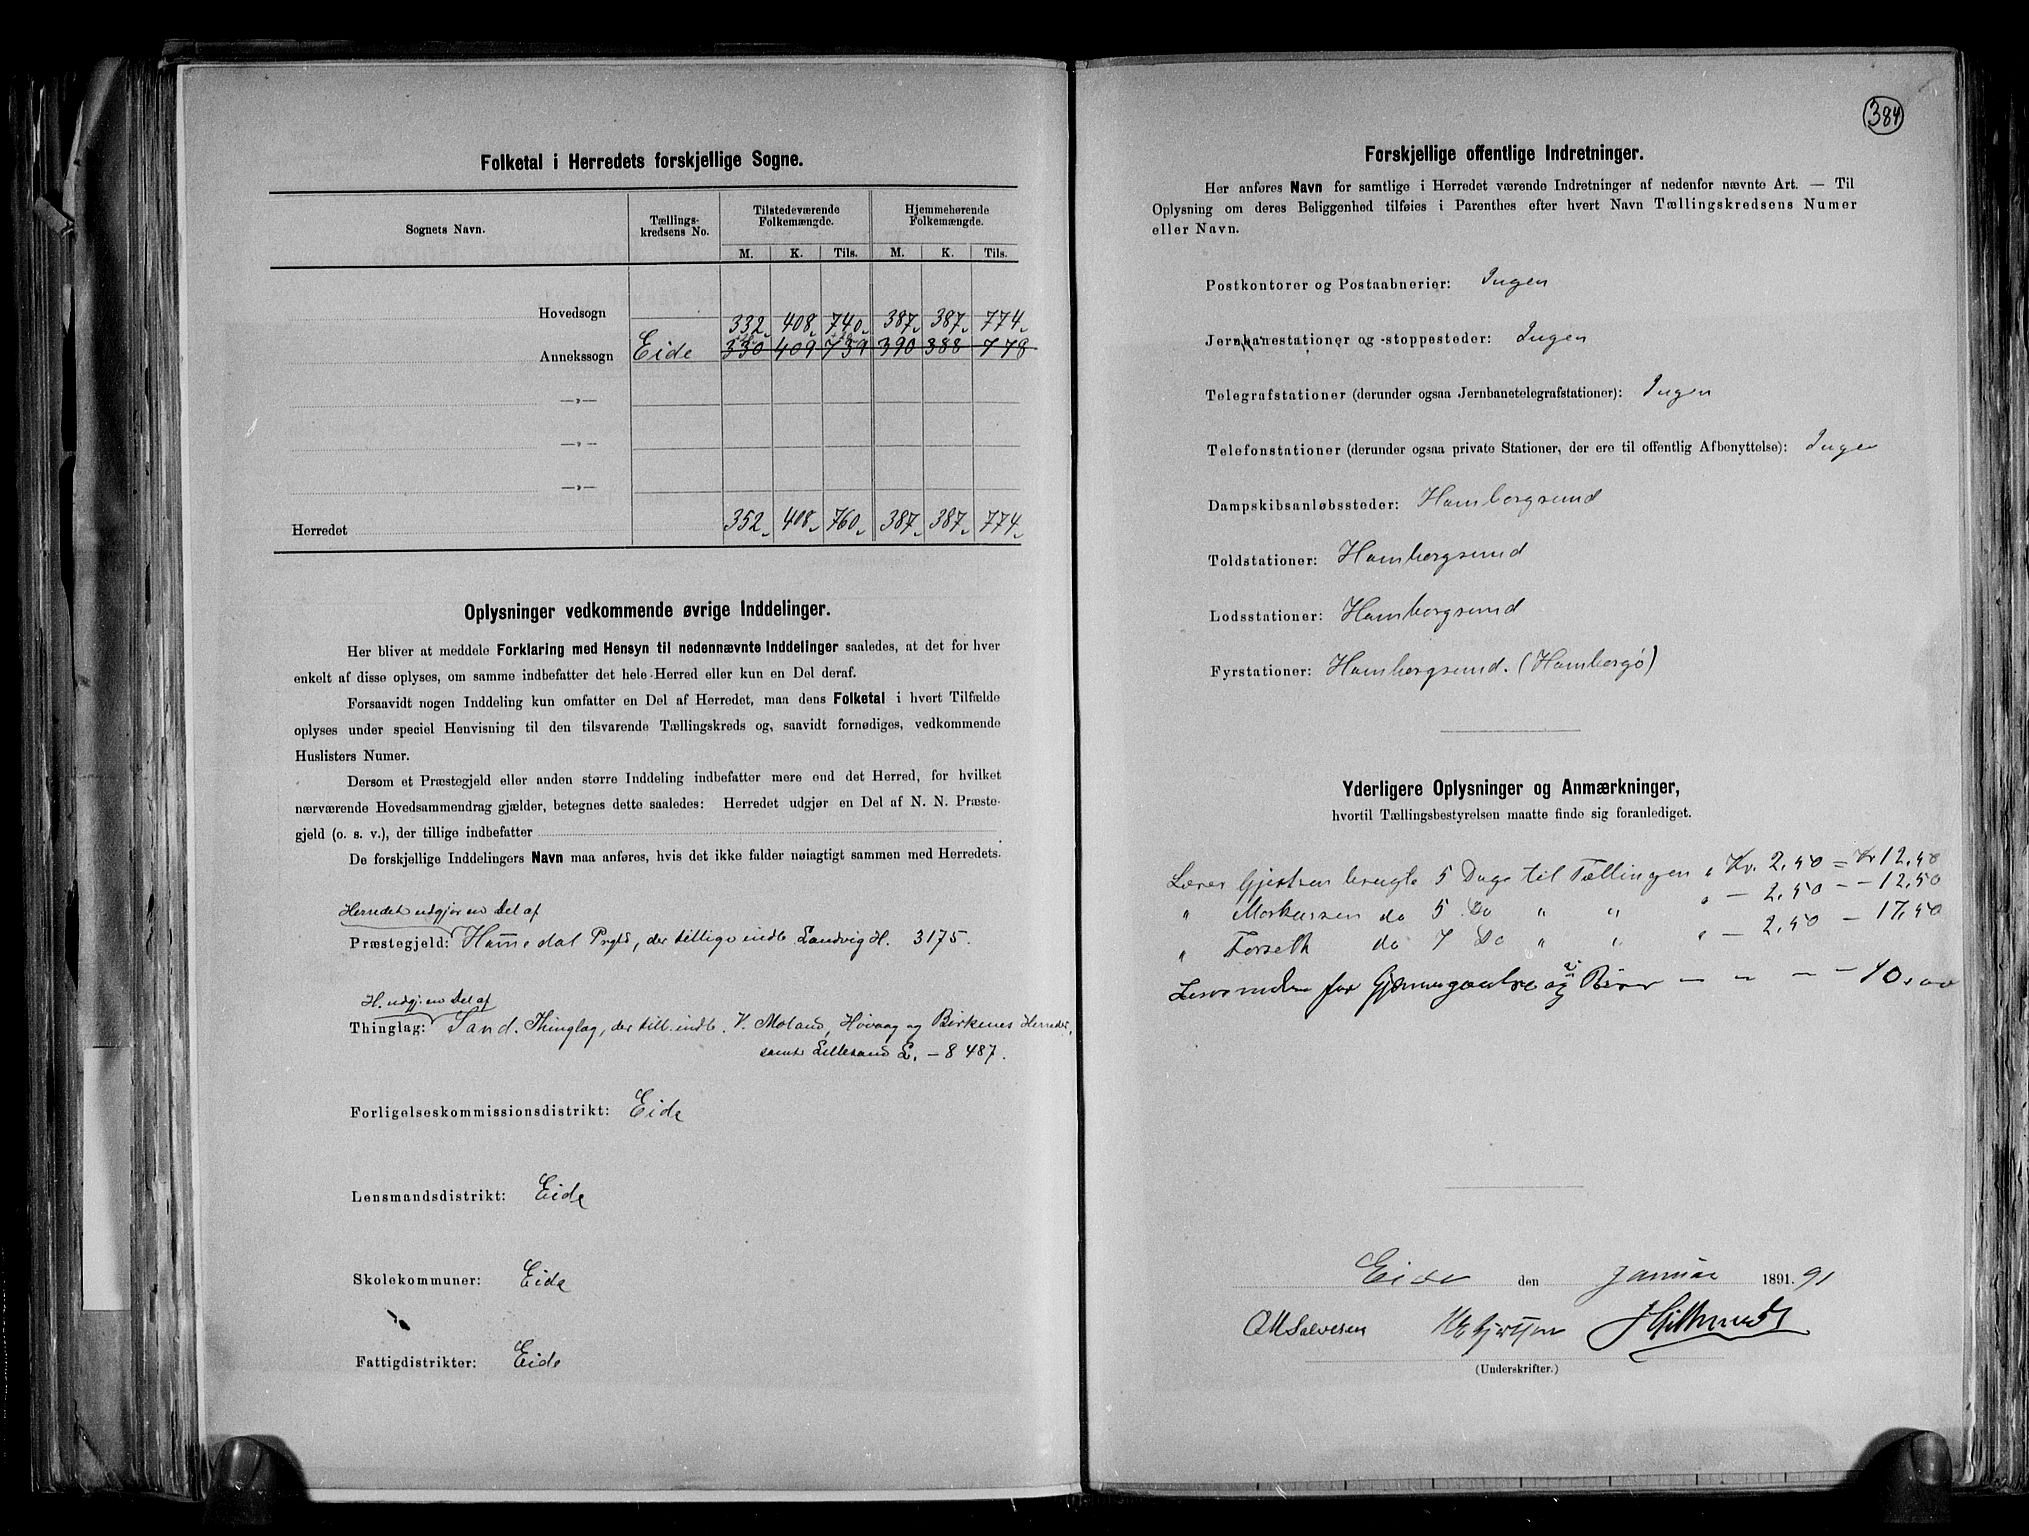 Folketal i Herredets forskjellige Sogne.
Sognets Navn. Tællings- kredsens No. Tilstedeværende Folkemængde. Hjemmehørende Folkemængde.
M. K. Tils. M. K. Tils.
Hovedsogn 332 408 740 387 387 774
Annekssogn Eide 330 409 739 390 388 778
—„—
—„—
—„—
Herredet 352 408 760 387 387 774
Oplysninger vedkommende øvrige Inddelinger.
Her bliver at meddele Forklaring med Hensyn til nedennævnte Inddelinger saaledes, at det for hver
enkelt af disse oplyses, om samme indbefatter det hele Herred eller kun en Del deraf.
Forsaavidt nogen Inddeling kun omfatter en Del af Herredet, maa dens Folketal i hvert Tilfælde
oplyses under speciel Henvisning til den tilsvarende Tællingskreds og, saavidt fornødiges, vedkommende
Huslisters Numer.
Dersom et Præstegjeld eller anden større Inddeling indbefatter mere end det Herred, for hvilket
nærværende Hovedsammendrag gjælder, betegnes dette saaledes: Herredet udgjør en Del af N. N. Præste-
gjeld (o. s. v.), der tillige indbefatter
De forskjellige Inddelingers Navn maa anføres, hvis det ikke falder nøiagtigt sammen med Herredets.
Herredet udgjør en Del af
Præstegjeld: Homedal Prgld, der tillige indb. Landvig H. 3175.
H. udgj. en Del af
Thinglag: Sand. Thinglag, der till. indb. V. Moland, Høvaag og Birkenes Herreder,
samt Lillesand L. – 8 487.
Forligelseskommissionsdistrikt: Eide
Lensmandsdistrikt: Eide
Skolekommuner: Eide
Fattigdistrikter: Eide
384
Forskjellige offentlige Indretninger.
Her anføres Navn for samtlige i Herredet værende Indretninger af nedenfor nævnte Art. — Til
Oplysning om deres Beliggenhed tilføies i Parenthes efter hvert Navn Tællingskredsens Numer
eller Navn.
Postkontorer og Postaabnerier: Ingen
Jernbanestationer og -stoppesteder: Ingen
Telegrafstationer (derunder ogsaa Jernbanetelegrafstationer): Ingen
Telefonstationer (derunder ogsaa private Stationer, der ere til offentlig Afbenyttelse): Ingen
Dampskibsanløbssteder: Homborgsund
Toldstationer: Homborgsund
Lodsstationer: Homborgsund
Fyrstationer: Homborgsund. (Homborgø)
Yderligere Oplysninger og Anmærkninger,
hvortil Tællingsbestyrelsen maatte finde sig foranlediget.
Lærer Gjertsen brugte 5 Dage til Tællingen „ Kr. 2,50 = Kr 12,50
„ Markussen do 5 Do „ „ „ – 2,50 – – 12,50
„ Forseth do 7 Do „ „ „ – 2,50 – 17,50
for Gjennemgaaelse – – – – 40,00
Eide den Januar 1891. 91
OMSalvesen
(Underskrifter.)